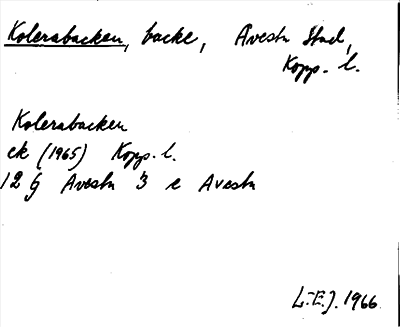 Kolerabacken, backe, Avesta Stad,
Kopp. l.
Kolerabacken
ek (1965) Kopp. l.
12 g Avesta 3 e Avesta
L.E.J. 1966